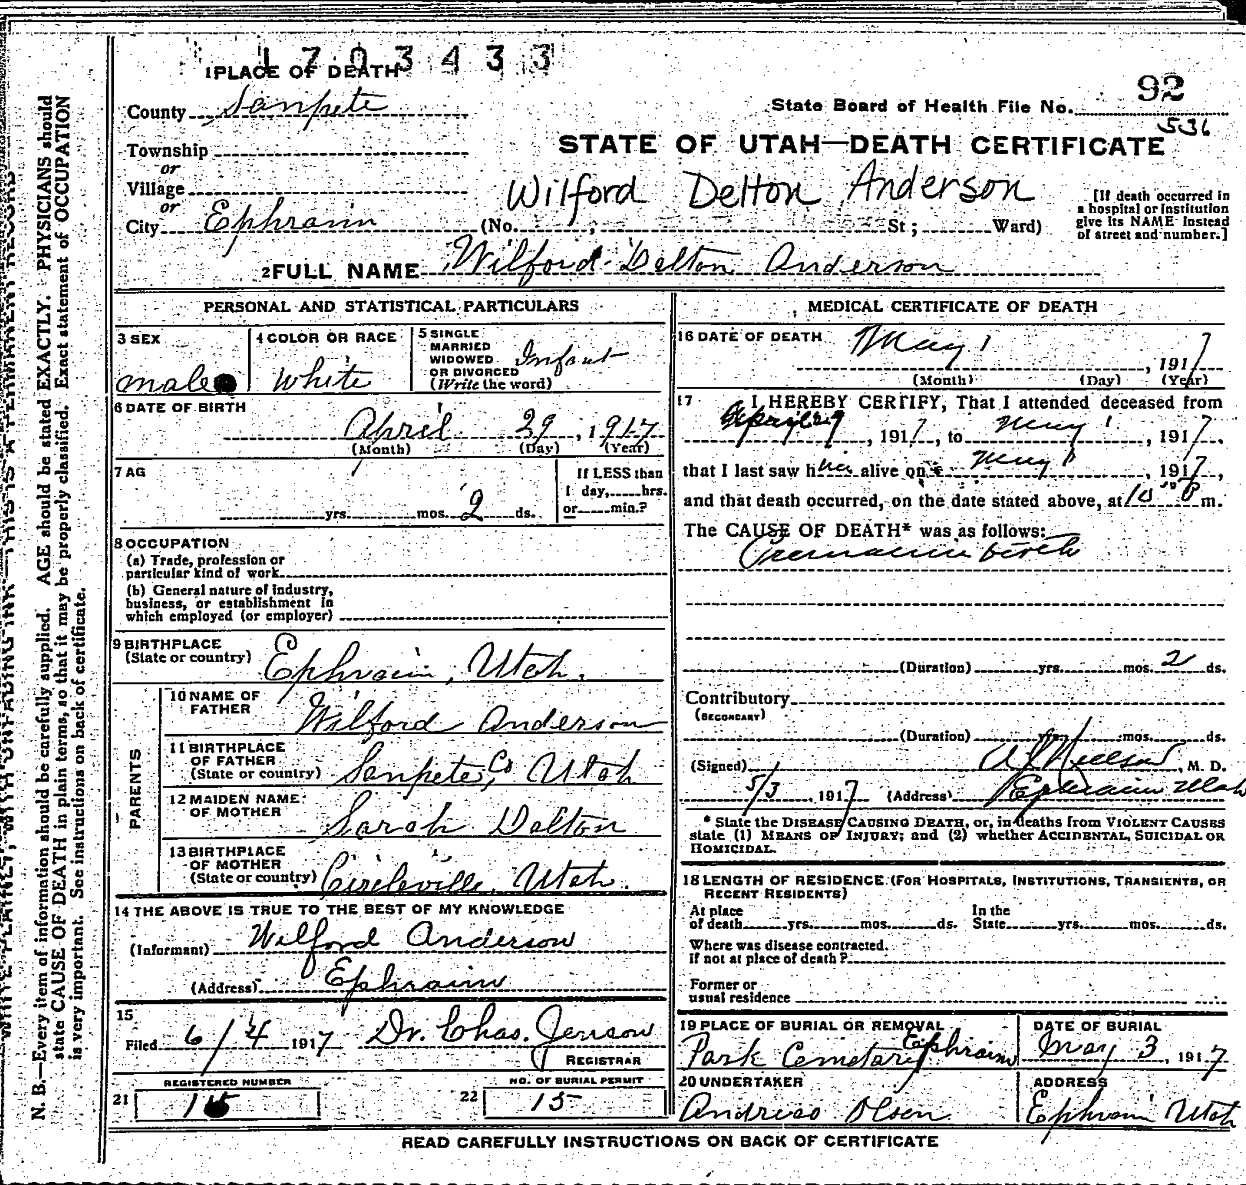 1703433
1 PLACE OF DEATH
County Sanpete
Township
or
Village
or
City Ephraim
State Board of Health File No. 92
536
STATE OF UTAH—DEATH CERTIFICATE
Wilford Delton Anderson
(No. ; St ; Ward)
[If death occurred in
a hospital or institution
give its NAME instead
of street and number.]
2 FULL NAME Wilford Dalton Anderson
PERSONAL AND STATISTICAL PARTICULARS
3 SEX
male
4 COLOR OR RACE
White
5 SINGLE
MARRIED
WIDOWED
OR DIVORCED
(Write the word)
Infant
6 DATE OF BIRTH
April 29, 1917
(Month) (Day) (Year)
7 AG
yrs. mos. 2 ds.
If LESS than
1 day, hrs.
or min.?
8 OCCUPATION
(a) Trade, profession or
particular kind of work
(b) General nature of industry,
business, or establishment in
which employed (or employer)
9 BIRTHPLACE
(State or country) Ephraim, Utah.
PARENTS
10 NAME OF
FATHER Wilford Anderson
11 BIRTHPLACE
OF FATHER
(State or country) Sanpete Co, Utah
12 MAIDEN NAME
OF MOTHER Sarah Dalton
13 BIRTHPLACE
OF MOTHER
(State or country) Circleville, Utah.
14 THE ABOVE IS TRUE TO THE BEST OF MY KNOWLEDGE
(Informant) Wilford Anderson
(Address) Ephraim
15
Filed 6/4 1917 Dr. Chas. Jenson
REGISTRAR
REGISTERED NUMBER
21
NO. OF BURIAL PERMIT
22 15
MEDICAL CERTIFICATE OF DEATH
16 DATE OF DEATH May 1, 1917
(Month) (Day) (Year)
17 I HEREBY CERTIFY, That I attended deceased from
April 29, 1917, to May 1, 1917,
that I last saw him alive on May 1, 1917,
and that death occurred, on the date stated above, at 10 P m.
The CAUSE OF DEATH* was as follows:
Premature birth
(Duration) yrs. mos. 2 ds.
Contributory
(SECONDARY)
(Duration) yrs. mos. ds.
(Signed) A L Nielson, M. D.
5/3, 1917 (Address) Ephraim Utah
* State the DISEASE CAUSING DEATH, or, in deaths from VIOLENT CAUSES
state (1) MEANS OF INJURY; and (2) whether ACCIDENTAL, SUICIDAL OR
HOMICIDAL.
18 LENGTH OF RESIDENCE (FOR HOSPITALS, INSTITUTIONS, TRANSIENTS, OR
RECENT RESIDENTS)
At place
of death yrs. mos. ds.
In the
State yrs. mos. ds.
Where was disease contracted.
If not at place of death?
Former or
usual residence
19 PLACE OF BURIAL OR REMOVAL
Park Cemetary Ephraim
DATE OF BURIAL
May 3, 1917
20 UNDERTAKER
Andreas Olsen.
ADDRESS
Ephraim Utah
READ CAREFULLY INSTRUCTIONS ON BACK OF CERTIFICATE
WRITE PLAINLY, WITH UNFADING INK—THIS IS A PERMANENT RECORD
N. B.—Every item of information should be carefully supplied. AGE should be stated EXACTLY. PHYSICIANS should
state CAUSE OF DEATH in plain terms, so that it may be properly classified. Exact statement of OCCUPATION
is very important. See instructions on back of certificate.